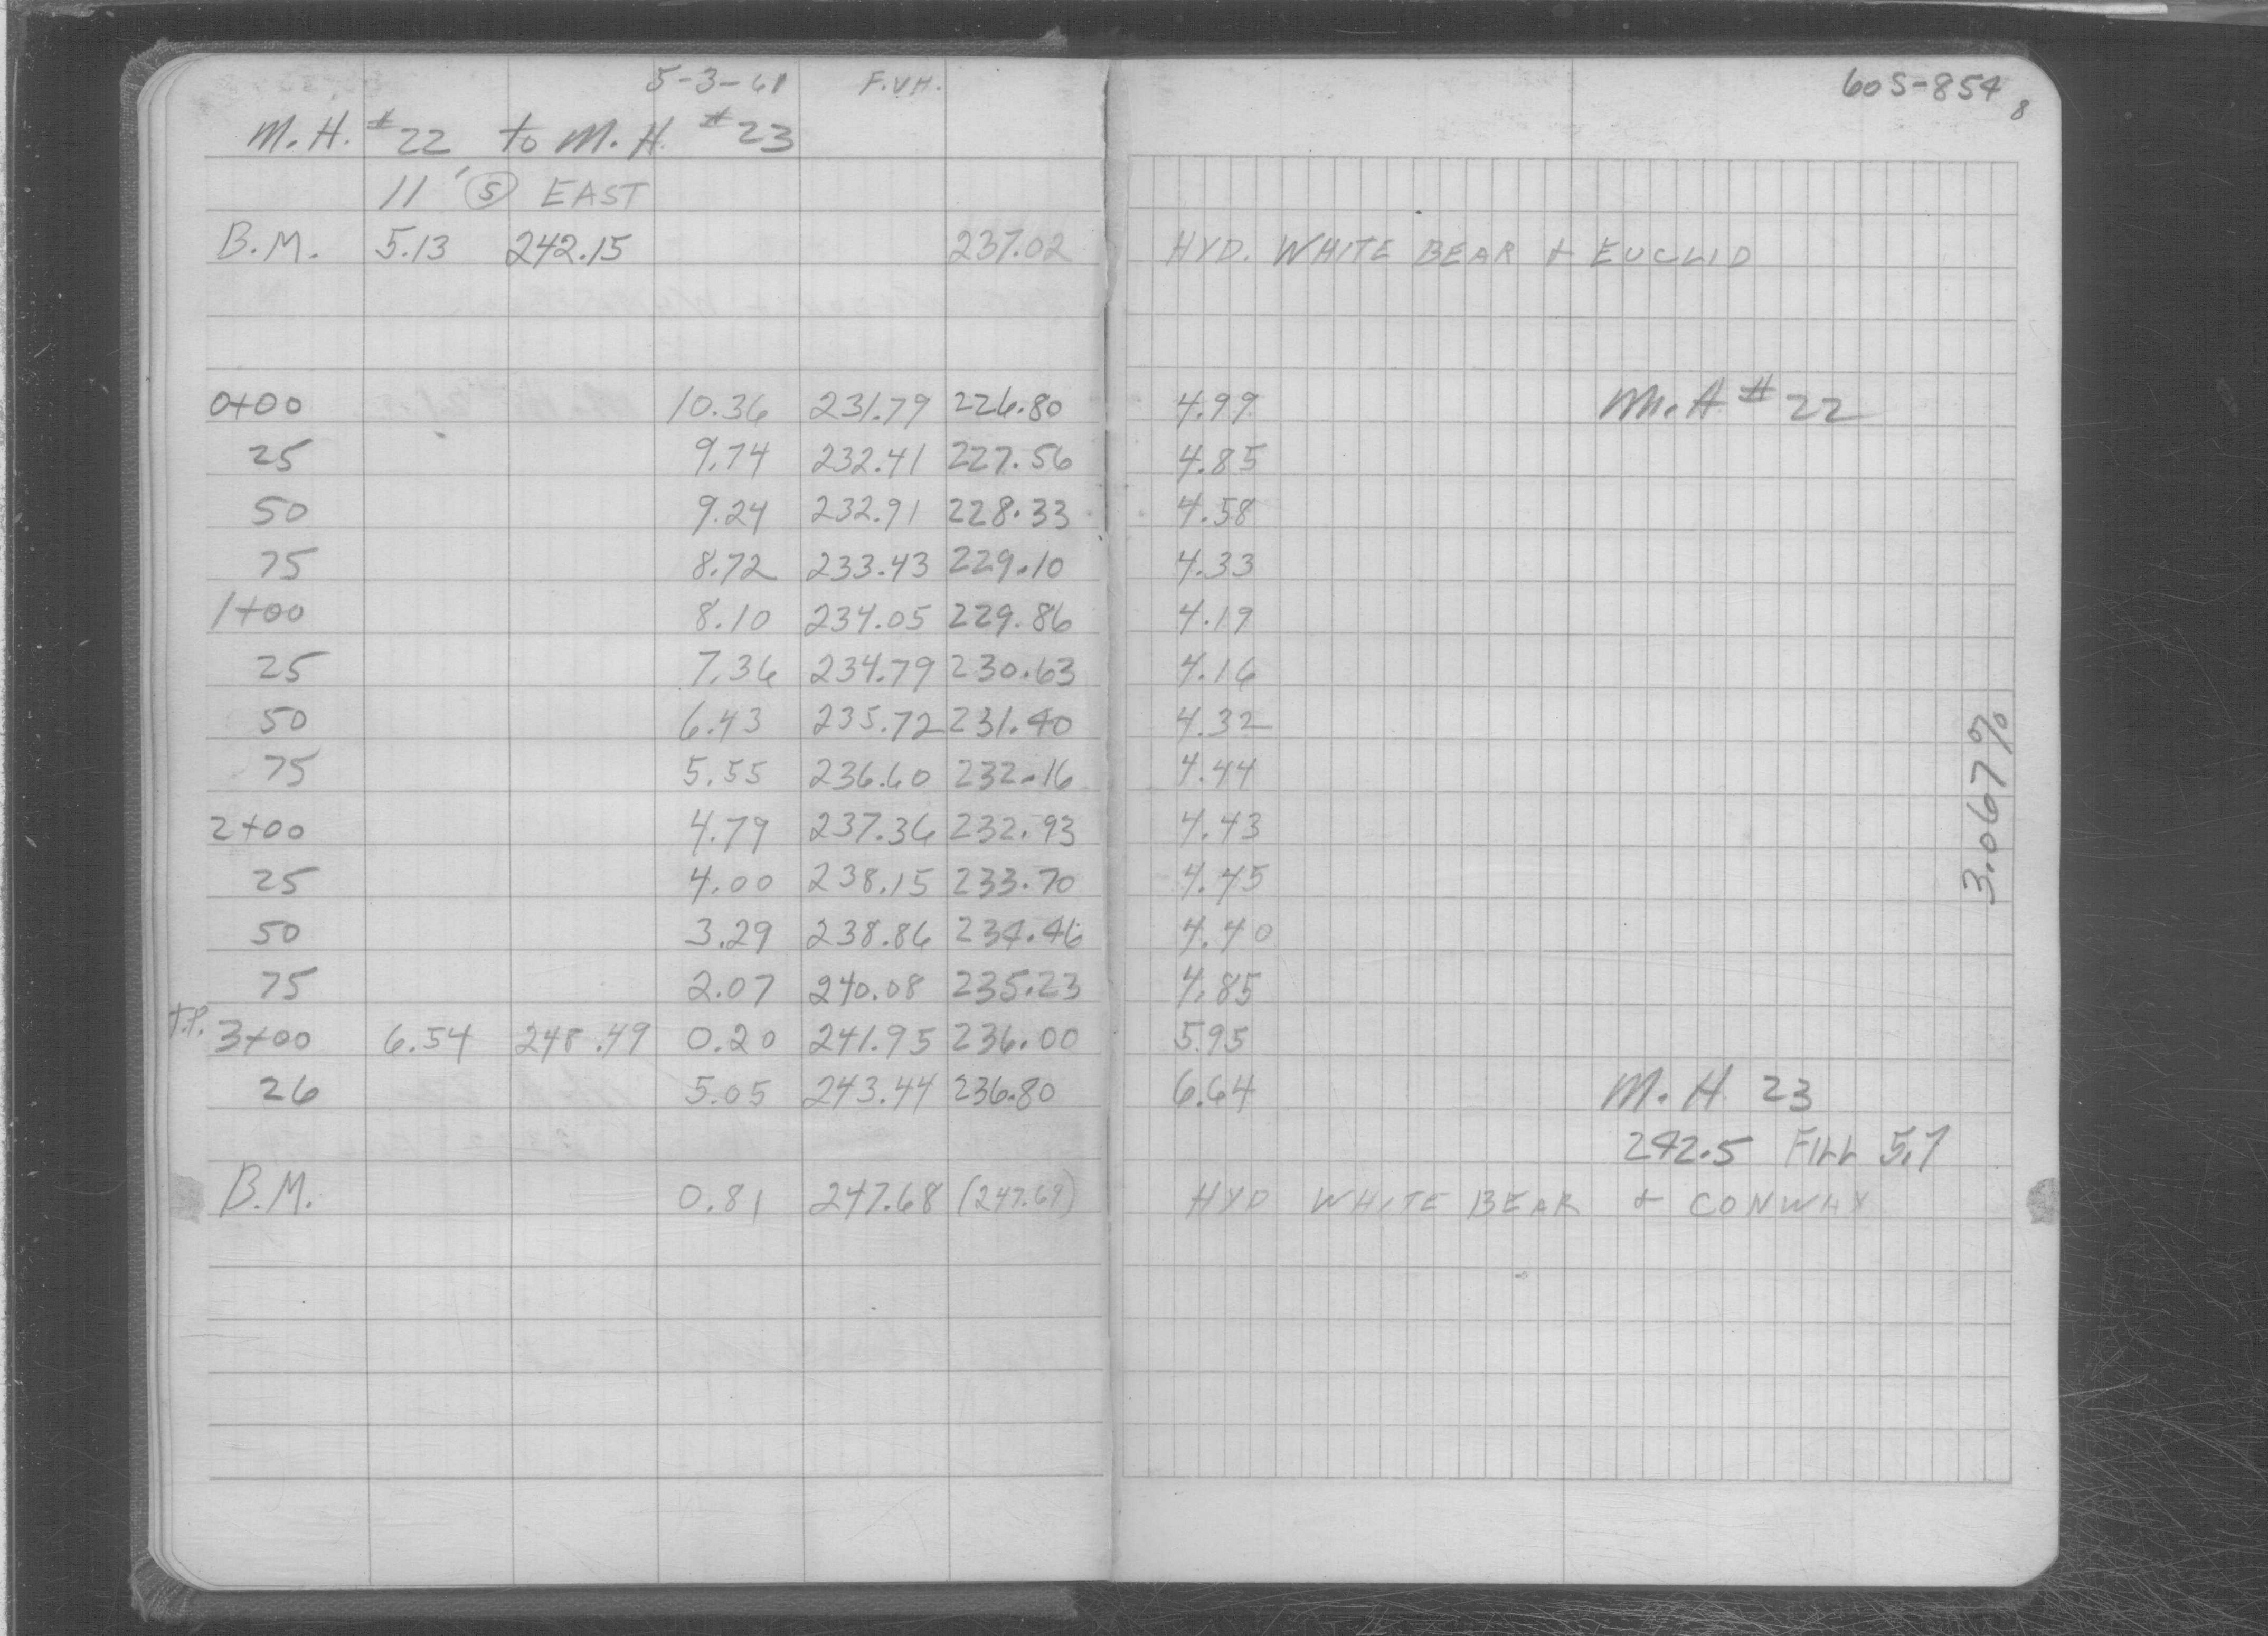 5-3-61 F.VH. 605-854 8
M.H. #22 to M.H. #23
11' (S) EAST
B.M. 5.13 242.15 237.02 HYD. WHITE BEAR + EUCLID
0+00 10.36 231.79 226.80 4.99 M.H #22
25 9.74 232.41 227.56 4.85
50 9.24 232.91 228.33 4.58
75 8.72 233.43 229.10 4.33
1+00 8.10 234.05 229.86 4.19
25 7.36 234.79 230.63 4.16
50 6.43 235.72 231.40 4.32
75 5.55 236.60 232.16 4.44
2+00 4.79 237.36 232.93 4.43
25 4.00 238.15 233.70 4.45
50 3.29 238.86 234.46 4.40
75 2.07 240.08 235.23 4.85
T.P. 3+00 6.54 248.49 0.20 241.95 236.00 5.95
26 5.05 243.44 236.80 6.64 M.H 23
242.5 FILL 5.7
B.M. 0.81 247.68 (247.69) HYD WHITE BEAR + CONWAY
3.067%